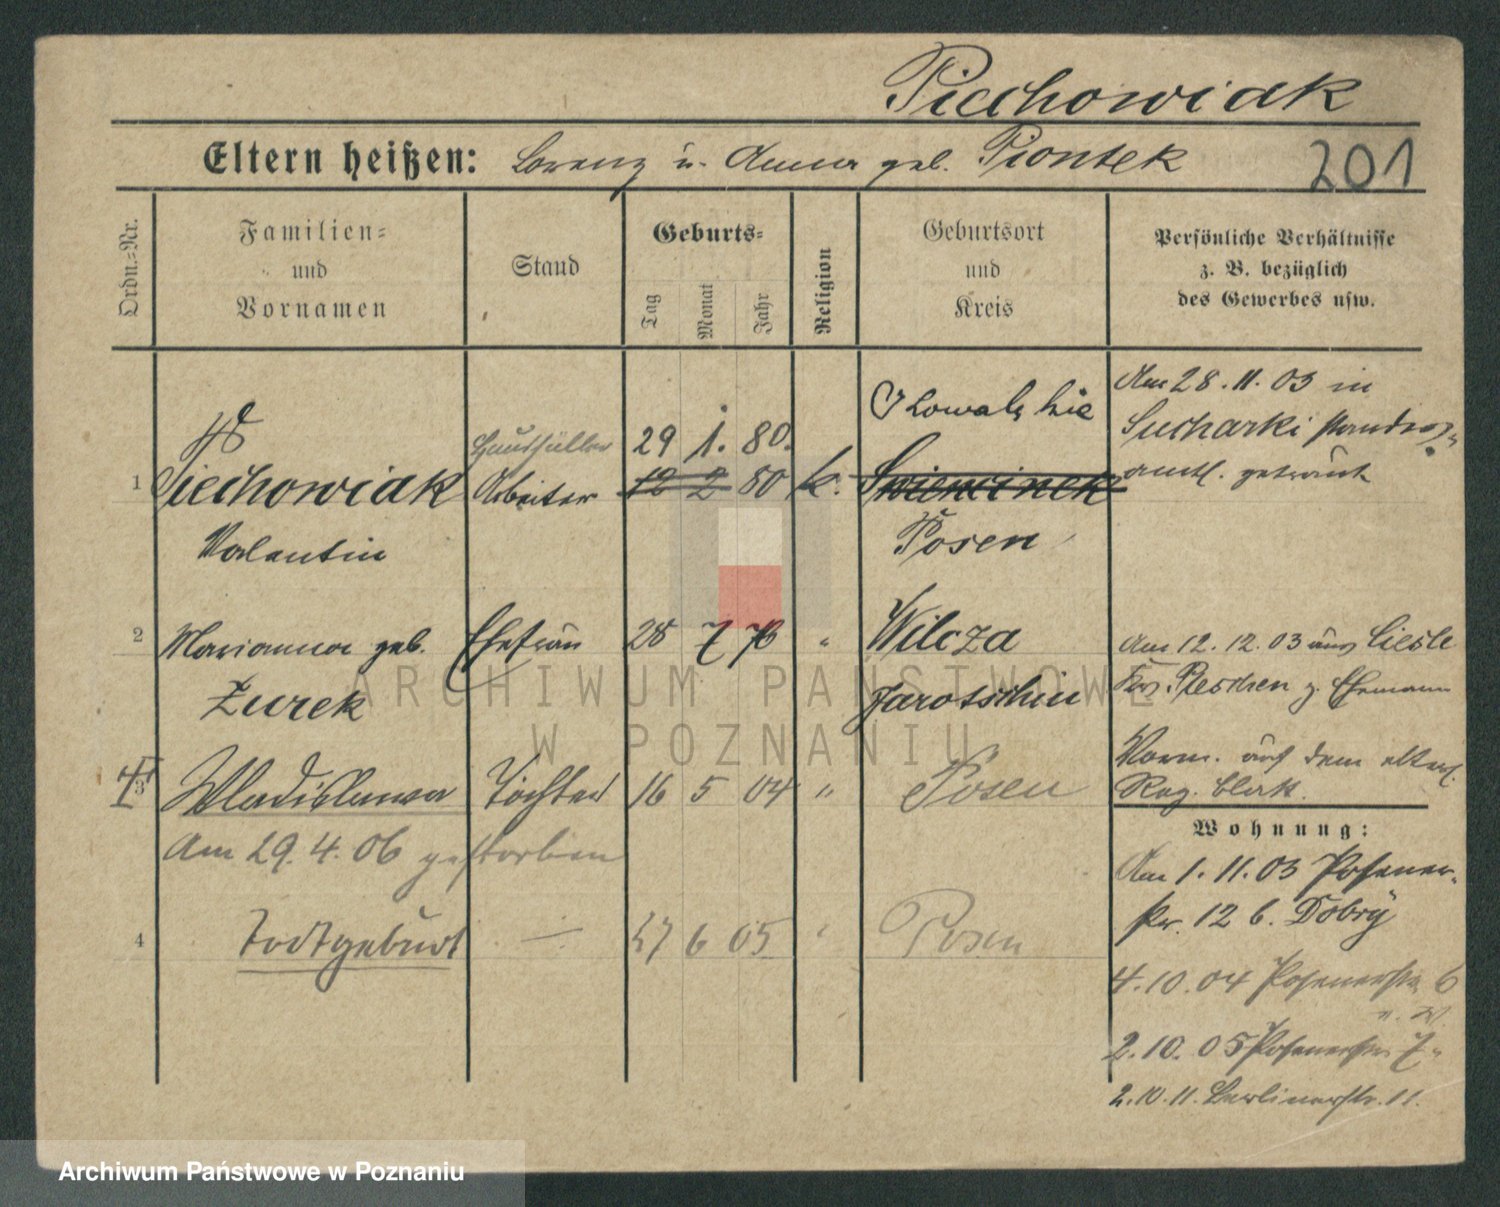 Piechowiak
Eltern heißen: Lorenz u. Anna geb. Piontek
201
Ordn.-Nr.
Familien-
und
Vornamen
Stand
Geburts-
Tag
Monat
Jahr
Religion
Geburtsort
und
Kreis
Persönliche Verhältnisse
z. B. bezüglich
des Gewerbes usw.
1
Piechowiak
Valentin
Arbeiter
29 1. 80.
12 2 80
k.
Swieminek
Posen
Am 28. 11. 03 in
Sucharki
amtl. getraut
2
Marianna geb.
Zurek
Ehefrau
28 7 76
"
Wilcza
Jarotschin
Am 12. 12. 03 aus
Krs. Pleschen z. Ehemann
3
Wladislawa
Tochter
16 5 04
"
Posen
Am 29. 4. 06 gestorben
Vorm. auf dem elterl.
Reg. blatt.
4
Todtgeburt
—
27 6 05
"
Posen
Wohnung:
Am 1. 11. 03 Posener-
str. 12 b. Dobry
4. 10. 04 Posenerstr. 6
2. 10. 05 Posenerstr. 7
2. 10. 11. Berlinerstr. 11.
ARCHIWUM PAŃSTWOWE
W POZNANIU
Archiwum Państwowe w Poznaniu